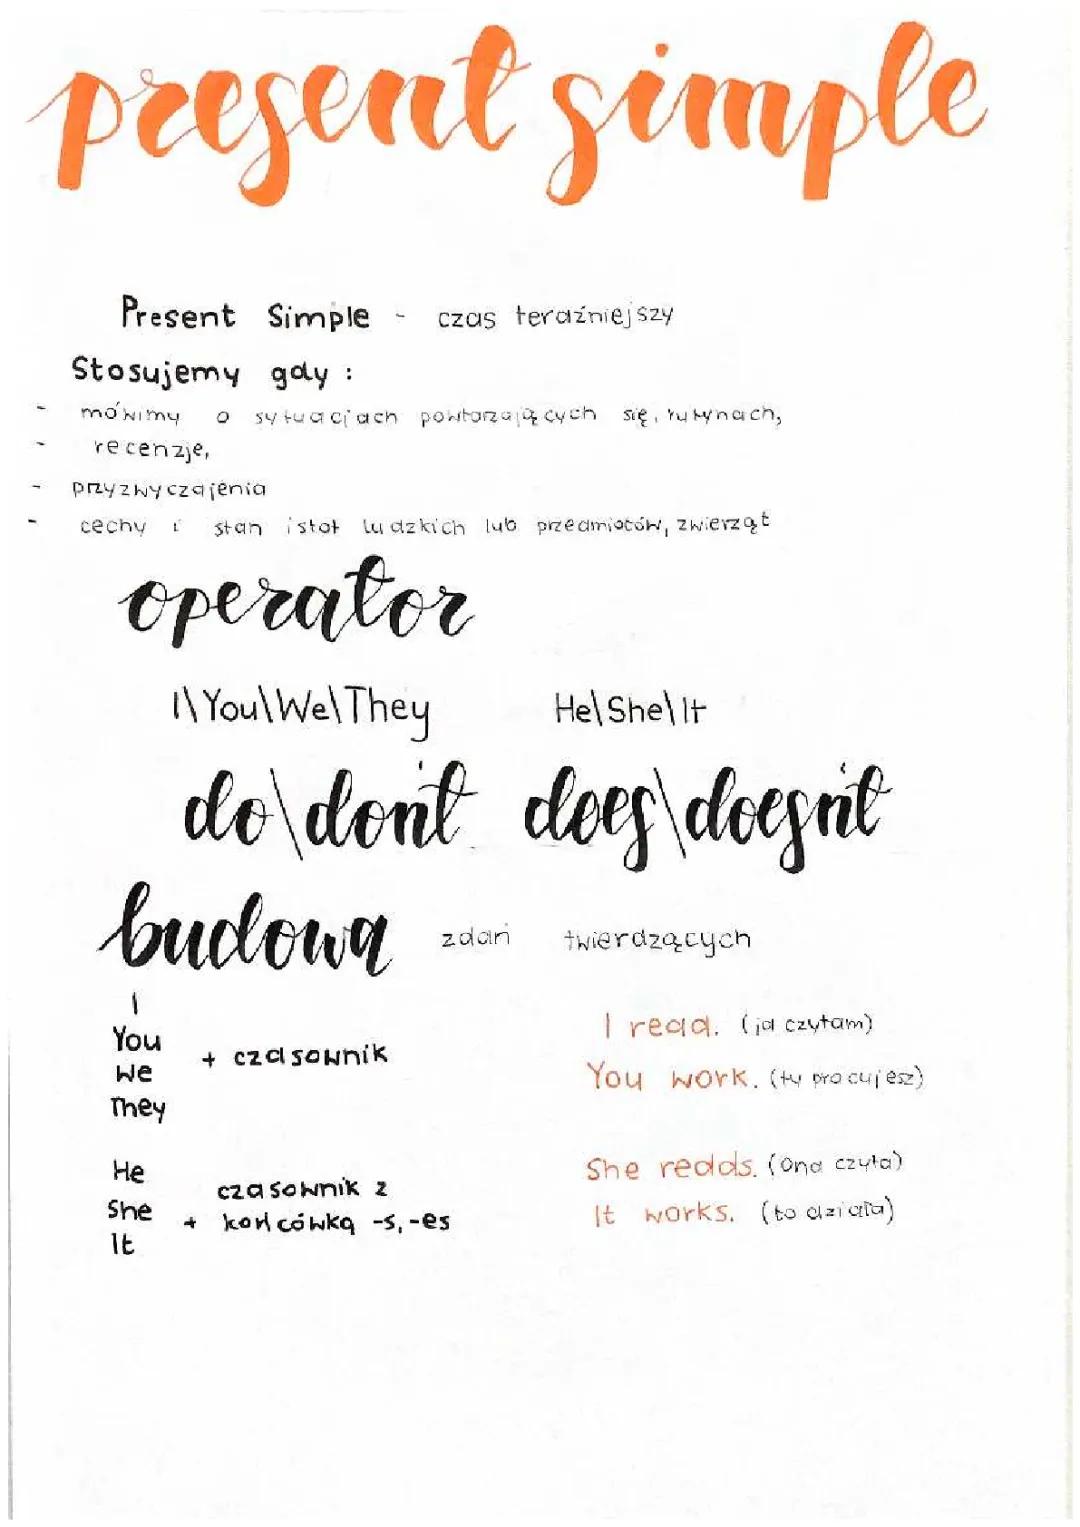 present simple
Present Simple - czas teraźniejszy
Stosujemy gdy :
- mówimy o sytuacjach powtarzających się, rutynach,
- recenzje,
- przyzwyczajenia
- cechy i stan istot ludzkich lub przedmiotów, zwierząt
operator
I\You\We\They He\She\It
do\don't does\doesn't
budowa zdań twierdzących
I
You
we
They
+ czasownik
I read. (ja czytam)
You work. (ty pracujesz)
He
She
It
+ czasownik z
końcówką -s, -es
She reads. (Ona czyta)
It works. (to działa)